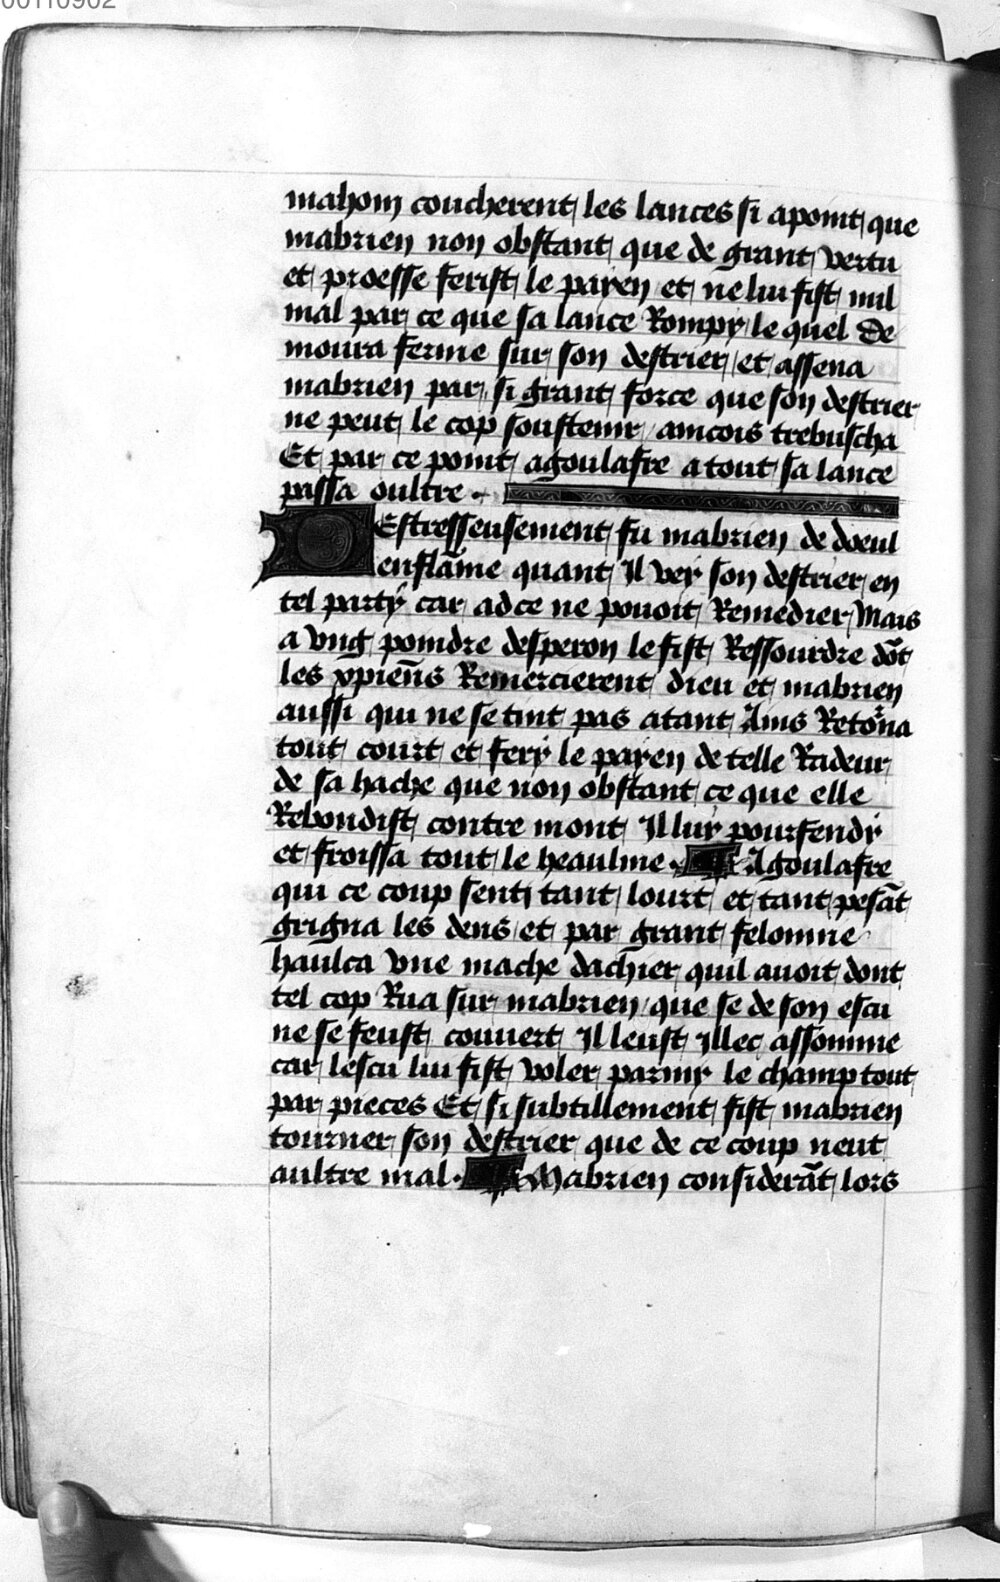 00110902
mahom coucherent les lances si apoint que
mabrien non obstant que de grant vertu
et proesse ferist le payen et ne lui fist nul
mal par ce que sa lance Rompy le quel de
moura ferme sur son destrier et assena
mabrien par si grant force que son destrier
ne peut le cop soustenir amcois trebuscha
Et par ce point agoulafre a tout sa lance
passa oultre .
DEstresseusement fu mabrien de doeul
enflãme quant Il vey son destrier en
tel party car adce ne pouoit Remedier Mais
a vng poindre desperon le fist Ressourdre dõt
les xpieñs Remercierent dieu et mabrien
aussi qui ne se tint pas atant Ains Reto͛na
tout court et fery le payen de telle Radeur
de sa hache que non obstant ce que elle
Rebondist contre mont Il luy pourfendy
et froissa tout le heaulme . Agoulafre
qui ce coup senti tant lourt et tant pesãt
grigna les dens et par grant felonnie
haulca vne mache dachier quil auoit dont
tel cop Rua sur mabrien que se de son escu
ne se feust couuert Il leust Illec assomme
car lescu lui fist voler parmy le champ tout
par pieces Et si subtillement fist mabrien
tourner son destrier que de ce coup neut
aultre mal . Mabrien considerãt lors